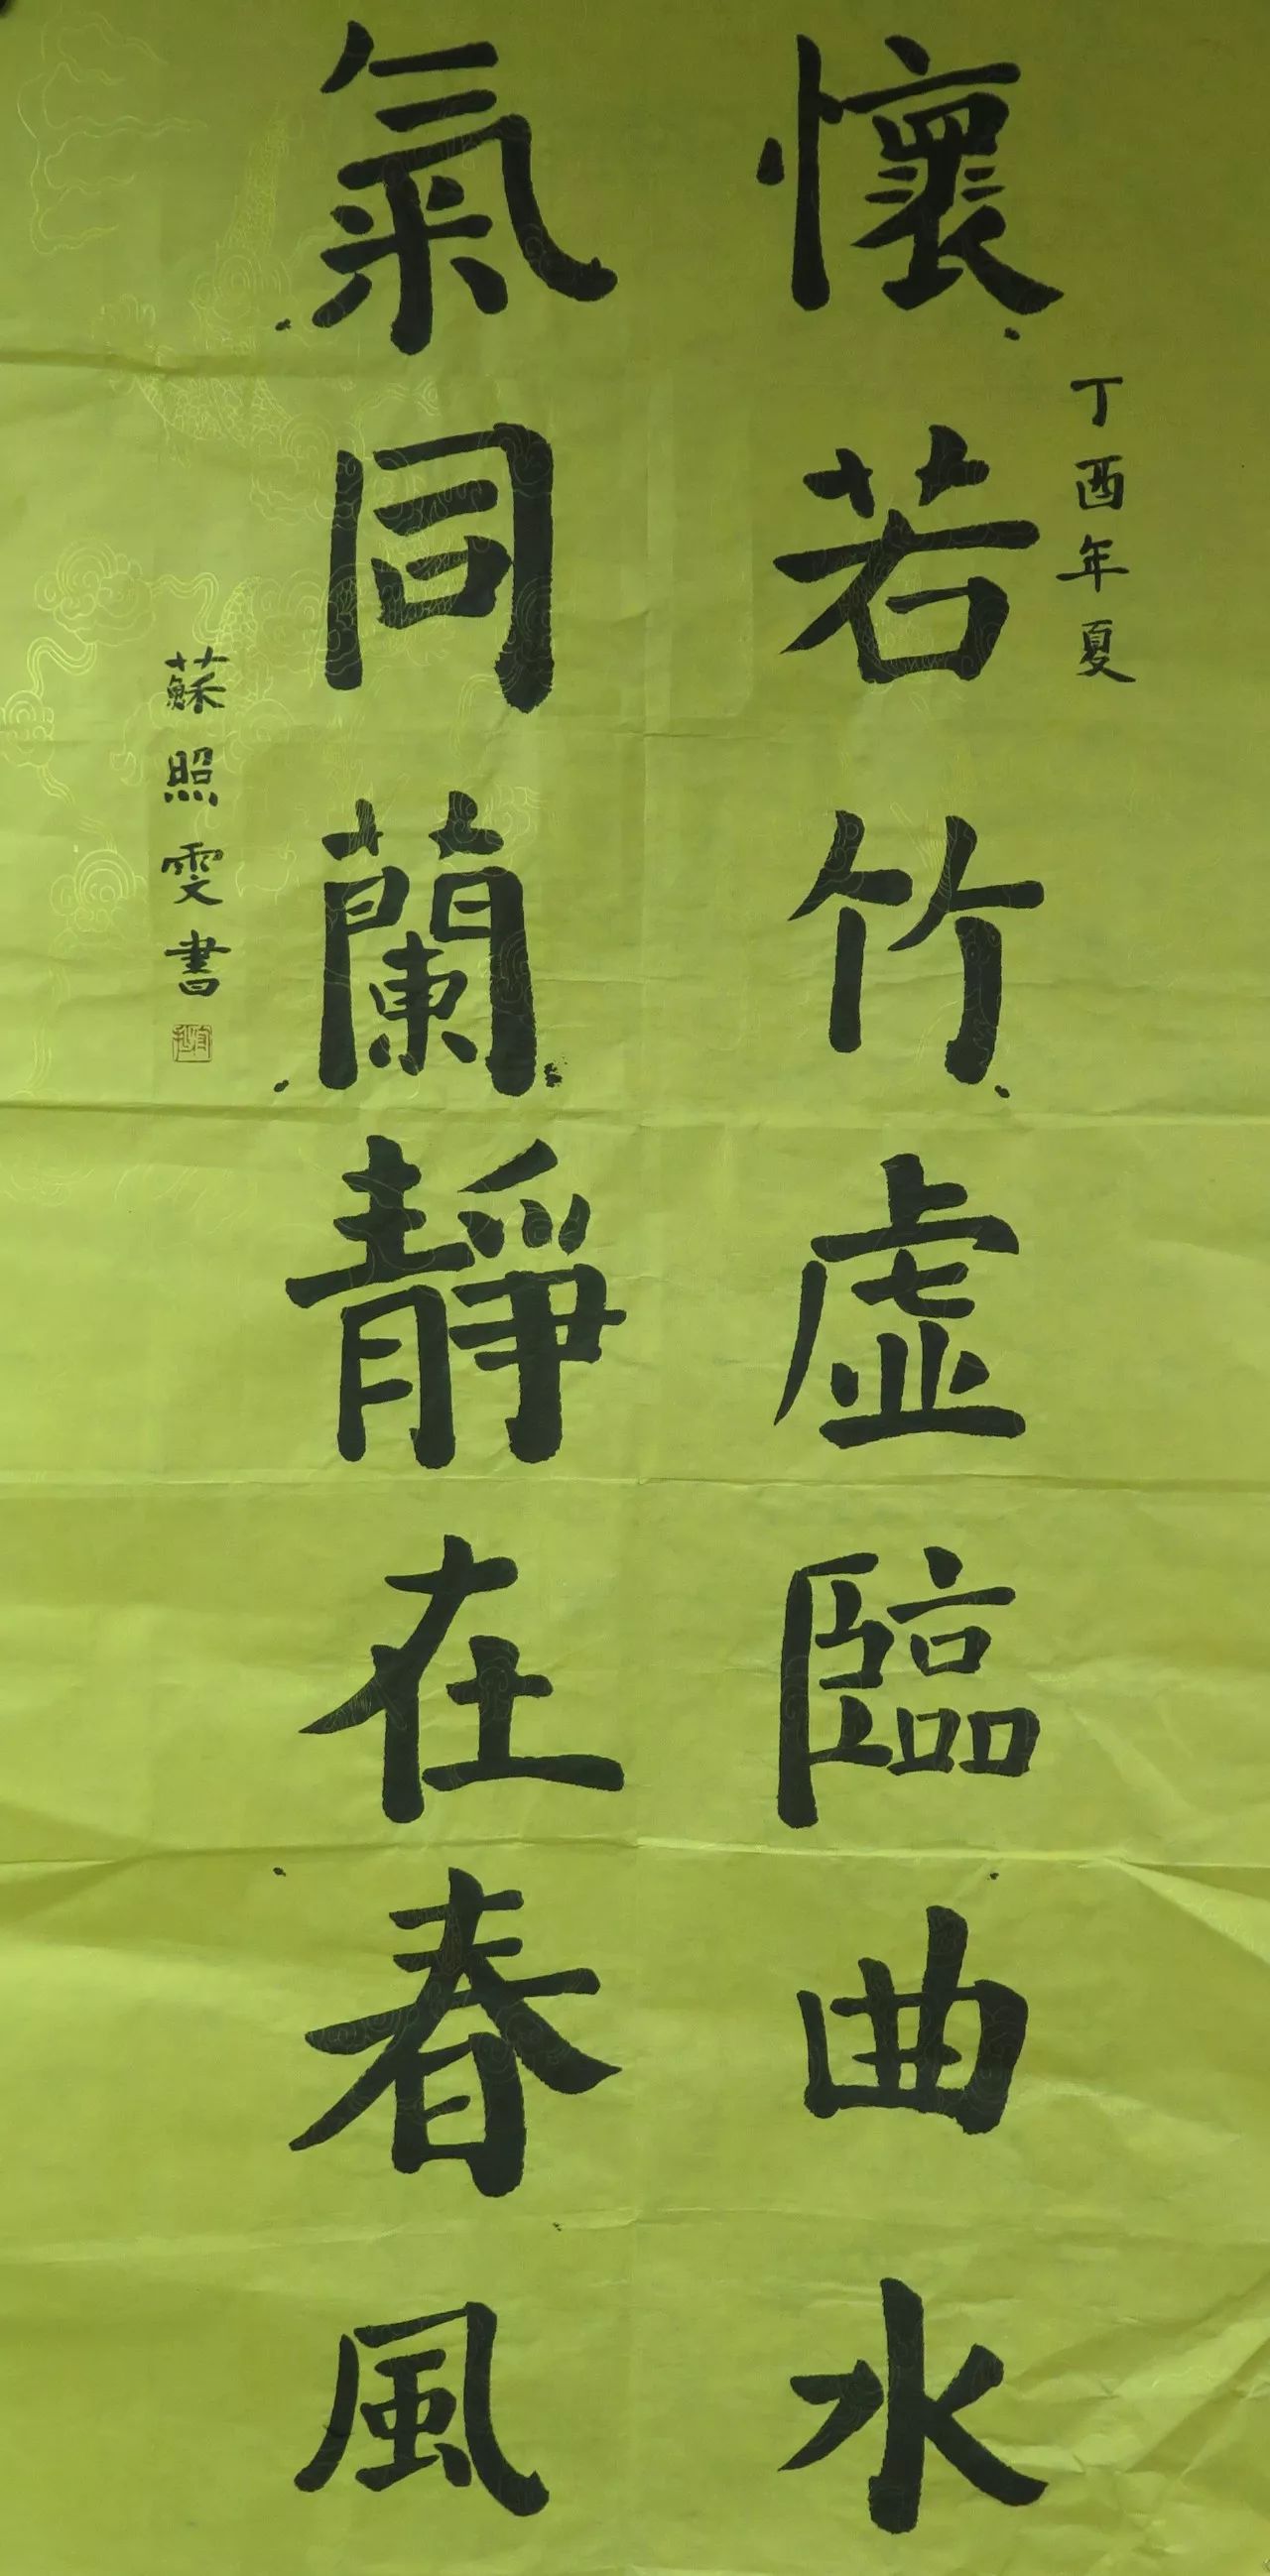 丁酉年夏
懷若竹虛臨曲水
氣同蘭靜在春風
蘇照雯書